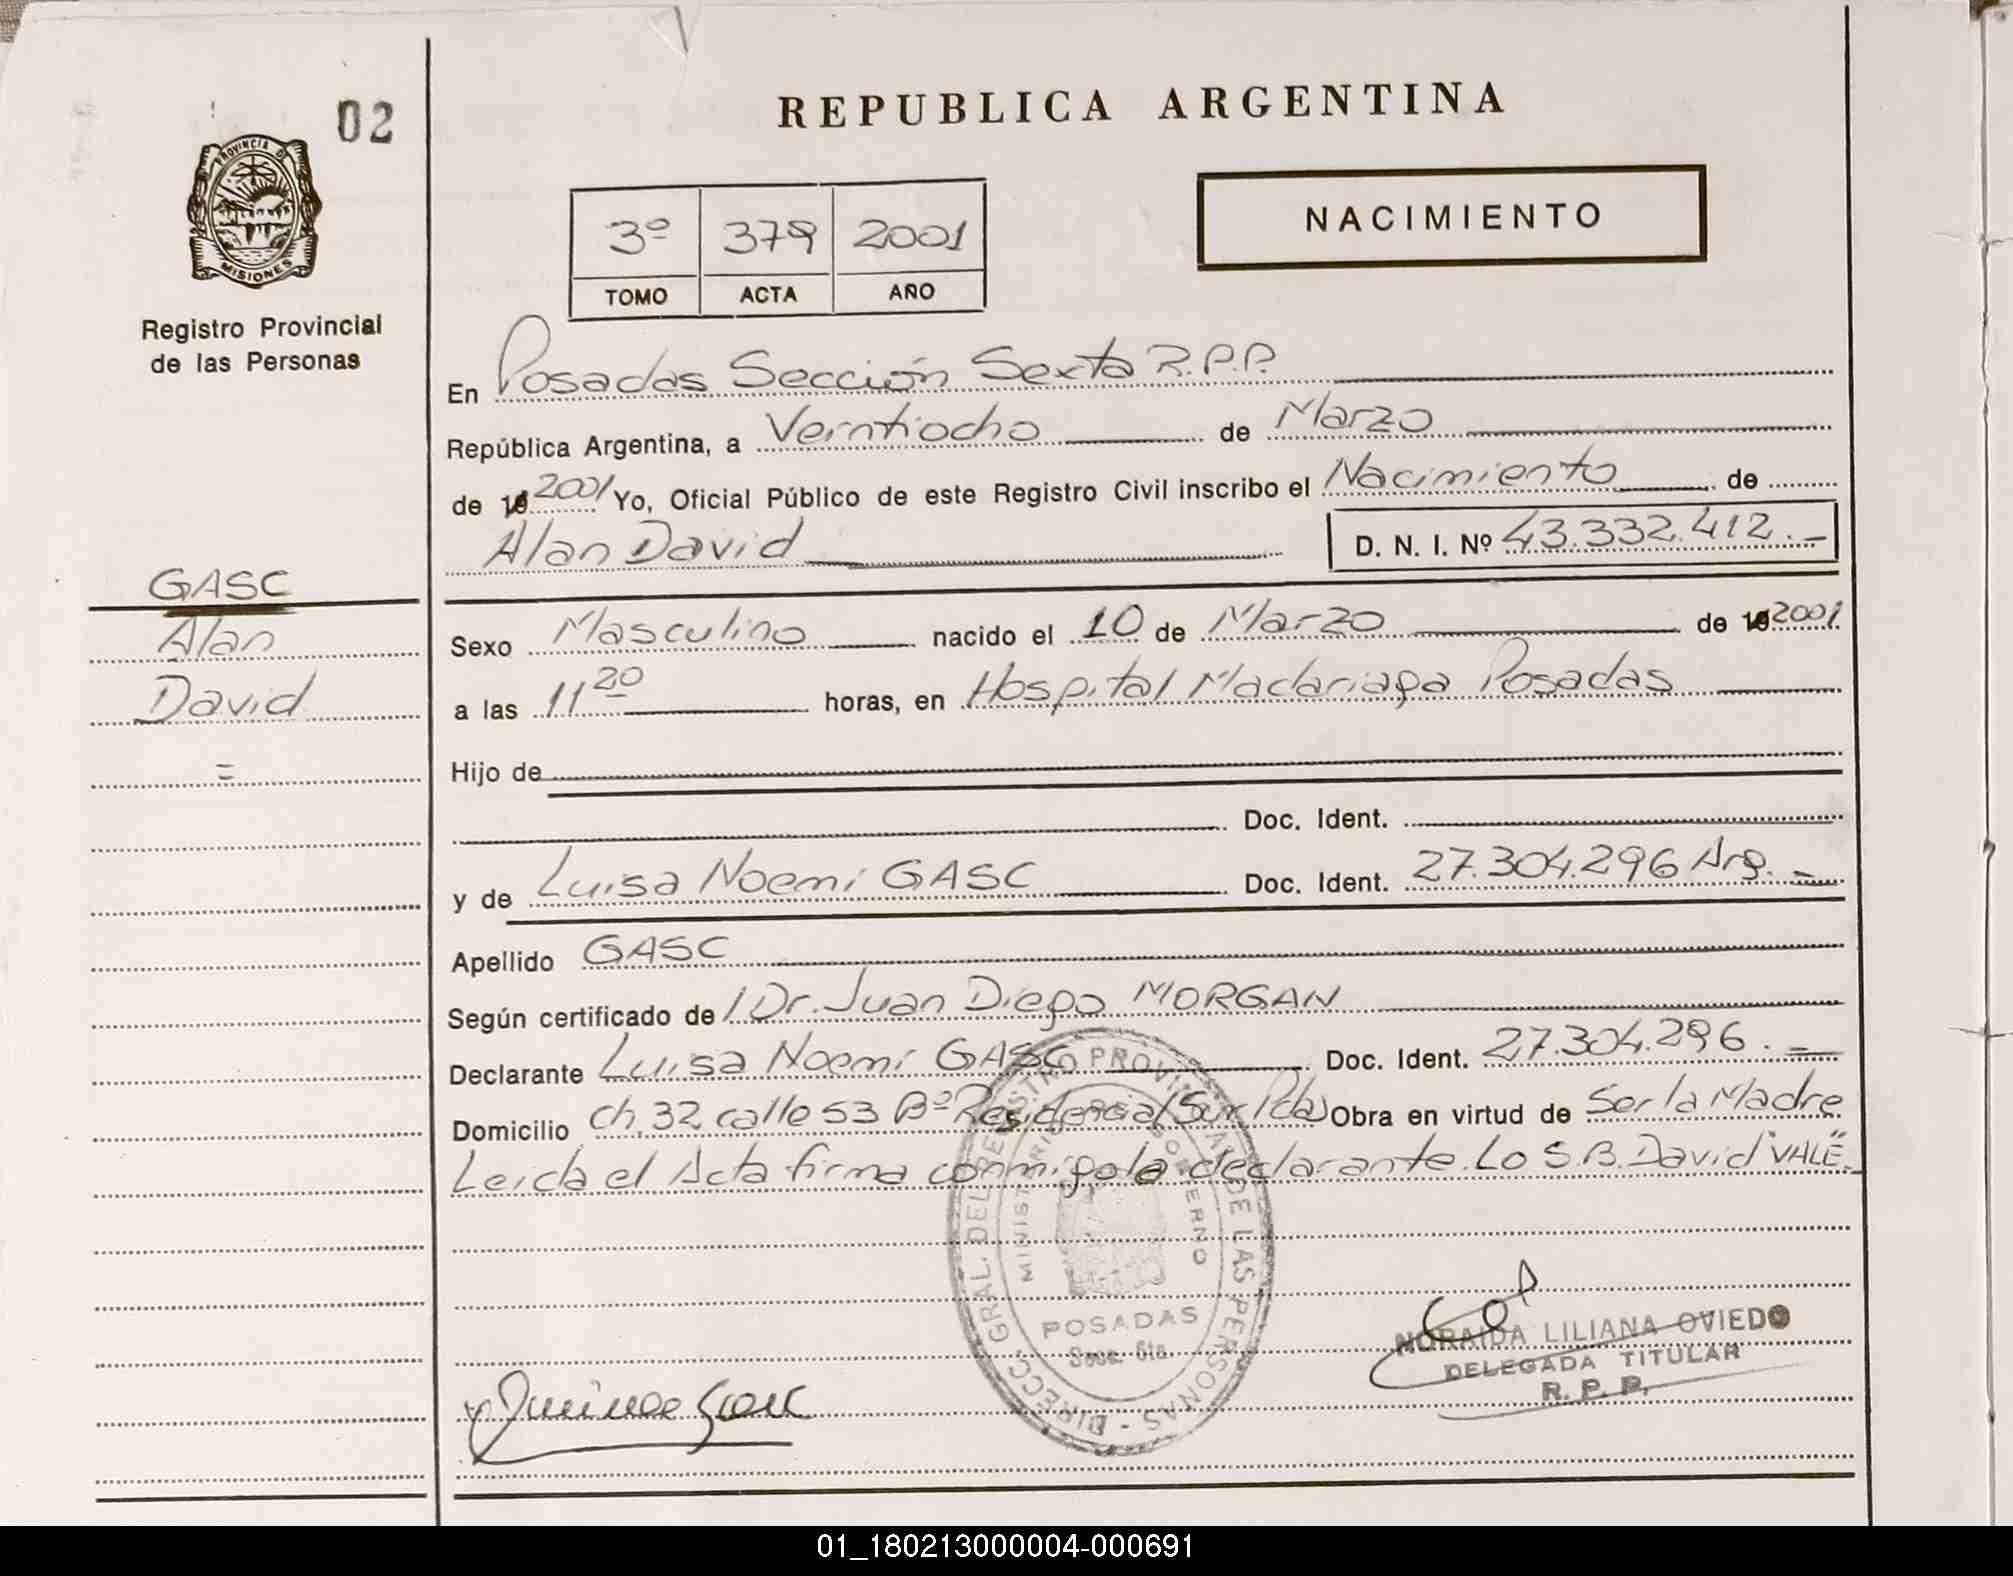 02
REPUBLICA ARGENTINA
PROVINCIA DE
MISIONES
Registro Provincial
de las Personas
3º 379 2001
TOMO ACTA AÑO
NACIMIENTO
En Posadas Sección Sexta R.P.P.
República Argentina, a Veintiocho de Marzo
de 2001 Yo, Oficial Público de este Registro Civil inscribo el Nacimiento de
Alan David D. N. I. Nº 43.332.412.-
GASC
Alan
David
=
Sexo Masculino nacido el 10 de Marzo de 2001
a las 11 20 horas, en Hospital Madariaga Posadas
Hijo de
Doc. Ident.
y de Luisa Noemí GASC Doc. Ident. 27.304.296 Arg. -
Apellido GASC
Según certificado de Dr. Juan Diego MORGAN
Declarante Luisa Noemí GASC Doc. Ident. 27.304.296. =
Domicilio ch. 32 calle 53 Bº Residencial Sur Pdas Obra en virtud de Ser la Madre
Leida el Acta firma conmigo la declarante. Lo S.B. David "VALE".
DIRECC. GRAL. DEL REGISTRO PROVINCIAL DE LAS PERSONAS -
MINISTERIO DE GOBIERNO
POSADAS
Secc. 6ta.
NORAIDA LILIANA OVIEDO
DELEGADA TITULAR
R. P. P.
01_180213000004-000691